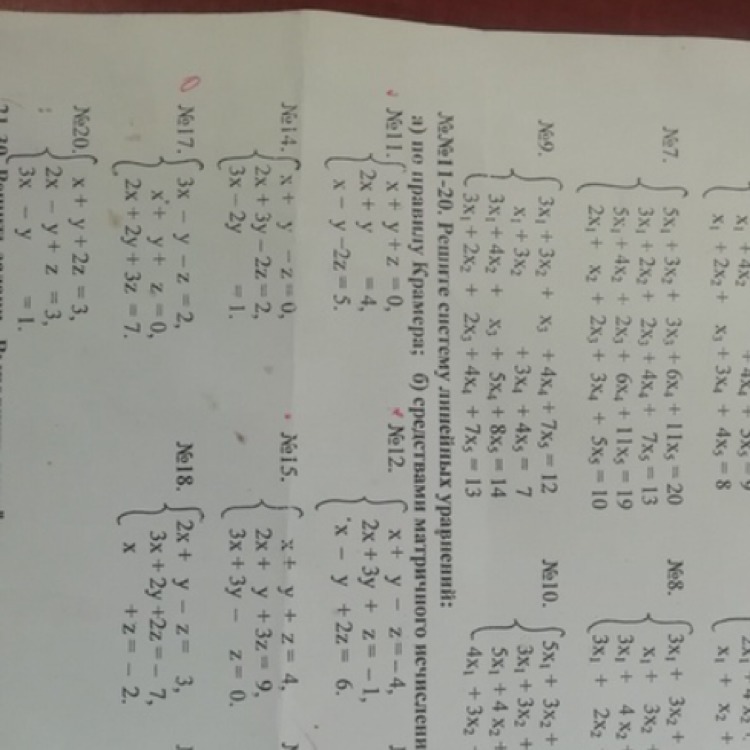 x₁ + 2x₂ + x₃ + 3x₄ + 4x₅ = 8
№7. 5x₁ + 3x₂ + 3x₃ + 6x₄ + 11x₅ = 20
3x₁ + 2x₂ + 2x₃ + 4x₄ + 7x₅ = 13
5x₁ + 4x₂ + 2x₃ + 6x₄ + 11x₅ = 19
2x₁ + x₂ + 2x₃ + 3x₄ + 5x₅ = 10
№8. 3x₁ + 3x₂ +
x₁ + 3x₂
3x₁ + 4x₂
3x₁ + 2x₂
№9. 3x₁ + 3x₂ + x₃ + 4x₄ + 7x₅ = 12
x₁ + 3x₂ + 3x₄ + 4x₅ = 7
3x₁ + 4x₂ + x₃ + 5x₄ + 8x₅ = 14
3x₁ + 2x₂ + 2x₃ + 4x₄ + 7x₅ = 13
№10. 5x₁ + 3x₂ +
3x₁ + 3x₂ +
5x₁ + 4x₂ +
4x₁ + 3x₂
№№11-20. Решите систему линейных уравнений:
а) по правилу Крамера; б) средствами матричного исчислени
№11. x + y + z = 0,
2x + y = 4,
x – y –2z = 5.
№12. x + y – z = – 4,
2x + 3y + z = – 1,
x – y + 2z = 6.
№14. x + y – z = 0,
2x + 3y – 2z = 2,
3x – 2y = 1.
№15. x + y + z = 4,
2x + y + 3z = 9,
3x + 3y – z = 0.
№17. 3x – y – z = 2,
x + y + z = 0,
2x + 2y + 3z = 7.
№18. 2x + y – z = 3,
3x + 2y +2z = – 7,
x + z = – 2.
№20. x + y + 2z = 3,
2x – y + z = 3,
3x – y = 1.